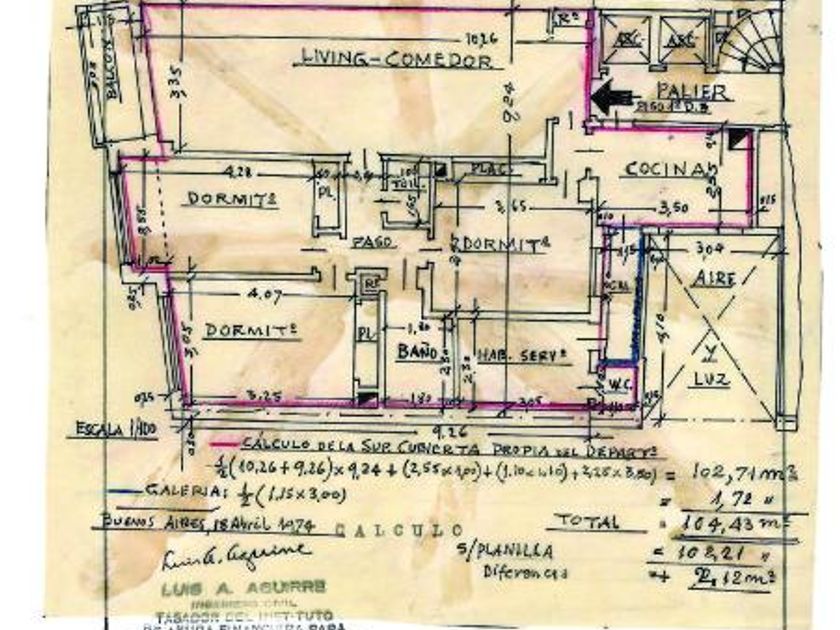 1,15
R⁰
ASC
ASC
10,26
LIVING-COMEDOR
BALCON
3,35
9,24
PALIER
PISO 1º D.B
4,28
PL.
TOIL.
PLAC.
COCINA
DORMITº
3,65
3,50
PASO
DORMITº
3,04
1,02
AIRE
4,07
DORMITº
PL
1,80
BAÑO
HAB. SERVº
Y
3,05
2,30
2,30
W.C.
LUZ
3,25
1,80
3,05
ESCALA 1/100
9,26
CÁLCULO DE LA SUP. CUBIERTA PROPIA DEL DEPARTº
½(10,26+9,26)×9,24+(2,55×1,00)+(1,10×1,10)+2,25×3,50) = 102,71 m²
GALERIA: ½(1,15×3,00) = 1,72 "
BUENOS AIRES, 18 Abril 1974 CALCULO TOTAL = 104,43 m²
S/PLANILLA = 102,21 "
Diferencia =+ 2,12 m²
Luis A. Aguirre
LUIS A. AGUIRRE
INGENIERO CIVIL
TASADOR DEL INSTITUTO
DE AYUDA FINANCIERA PARA